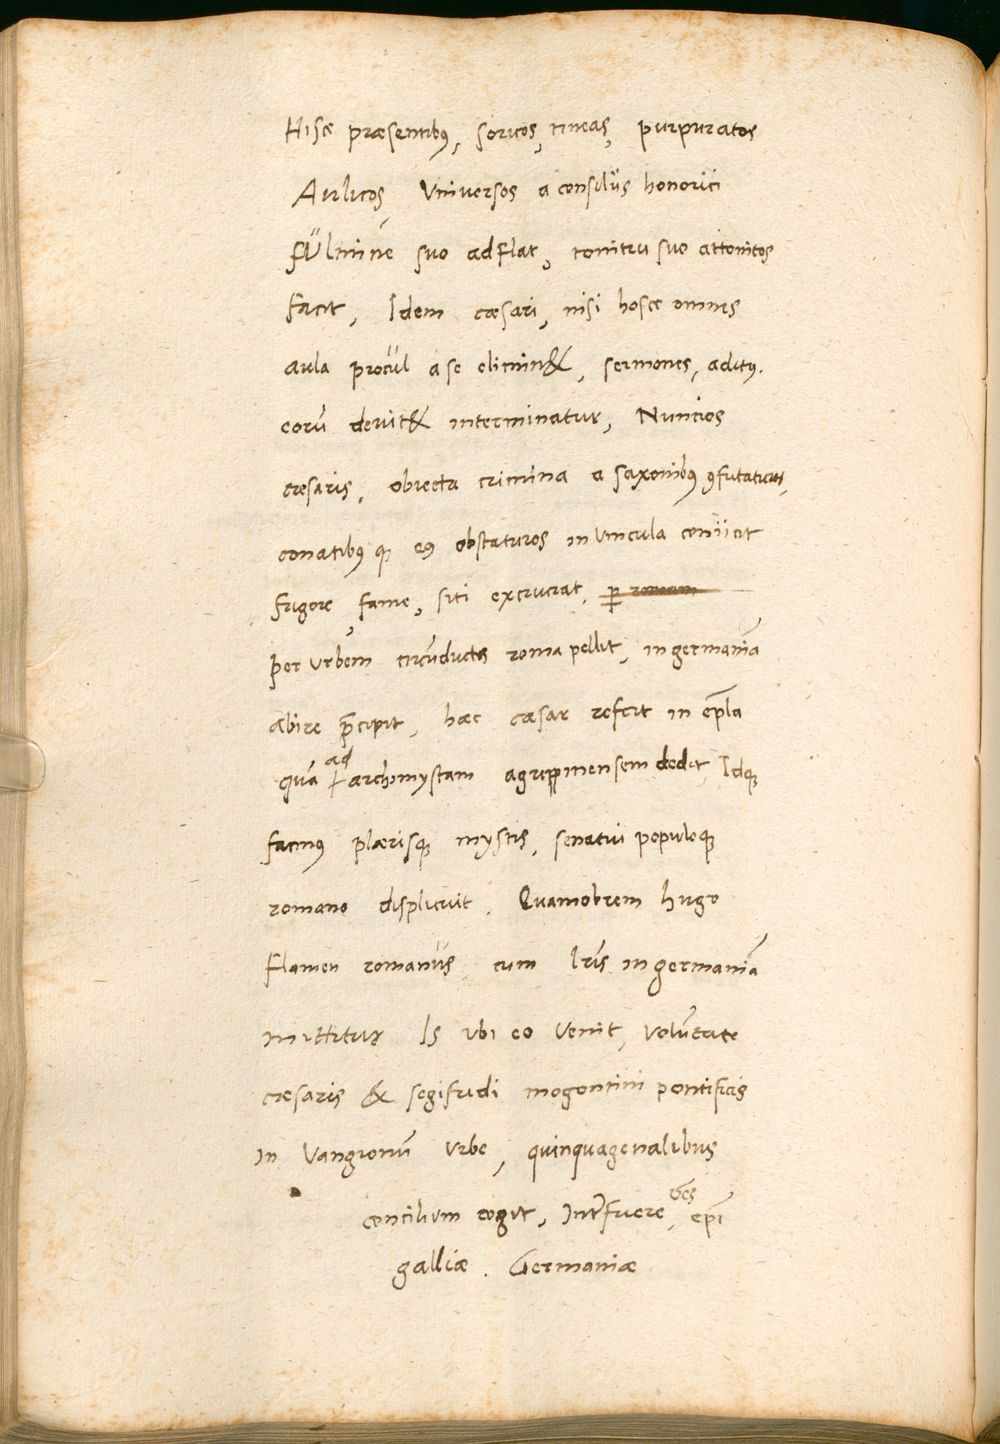 Hisce præsentibꝰ, sorices, tineas, purpuratos
Aulicos, Universos a consiliis honorici
fulmine suo adflat, tonitru suo attonitos
facit, Idem cæsari, nisi hosce omnes
aula procul a se elimin&, sermones, aditꝰ.
eorū devit& interminatur, Nuncios
cæsaris, obiecta crimina a saxonibꝰ ꝯfutaturos,
conatibꝰ qꝫ eiꝰ obstaturos in vincula coniicit
frigore, fame, siti excruciat, ꝑ romam
per urbem circūductos roma pellit, in germaniā
abire p̄cipit, hæc cæsar refert in ep̄la
quā ad archimystam agrippinensem dedit, Idqꝫ
facinꝰ plærisqꝫ mystis, senatui populoqꝫ
romano displicuit. Quamobrem hugo
flamen romanus cum lr̄is in germaniā
mittitur Is ubi eo venit, volūtate
cæsaris & segifridi mogontini pontificis
in Vangionū urbe, quinquagenalibus
concilium cogit, Interfuere oēs ep̄i
galliæ. Germaniæ